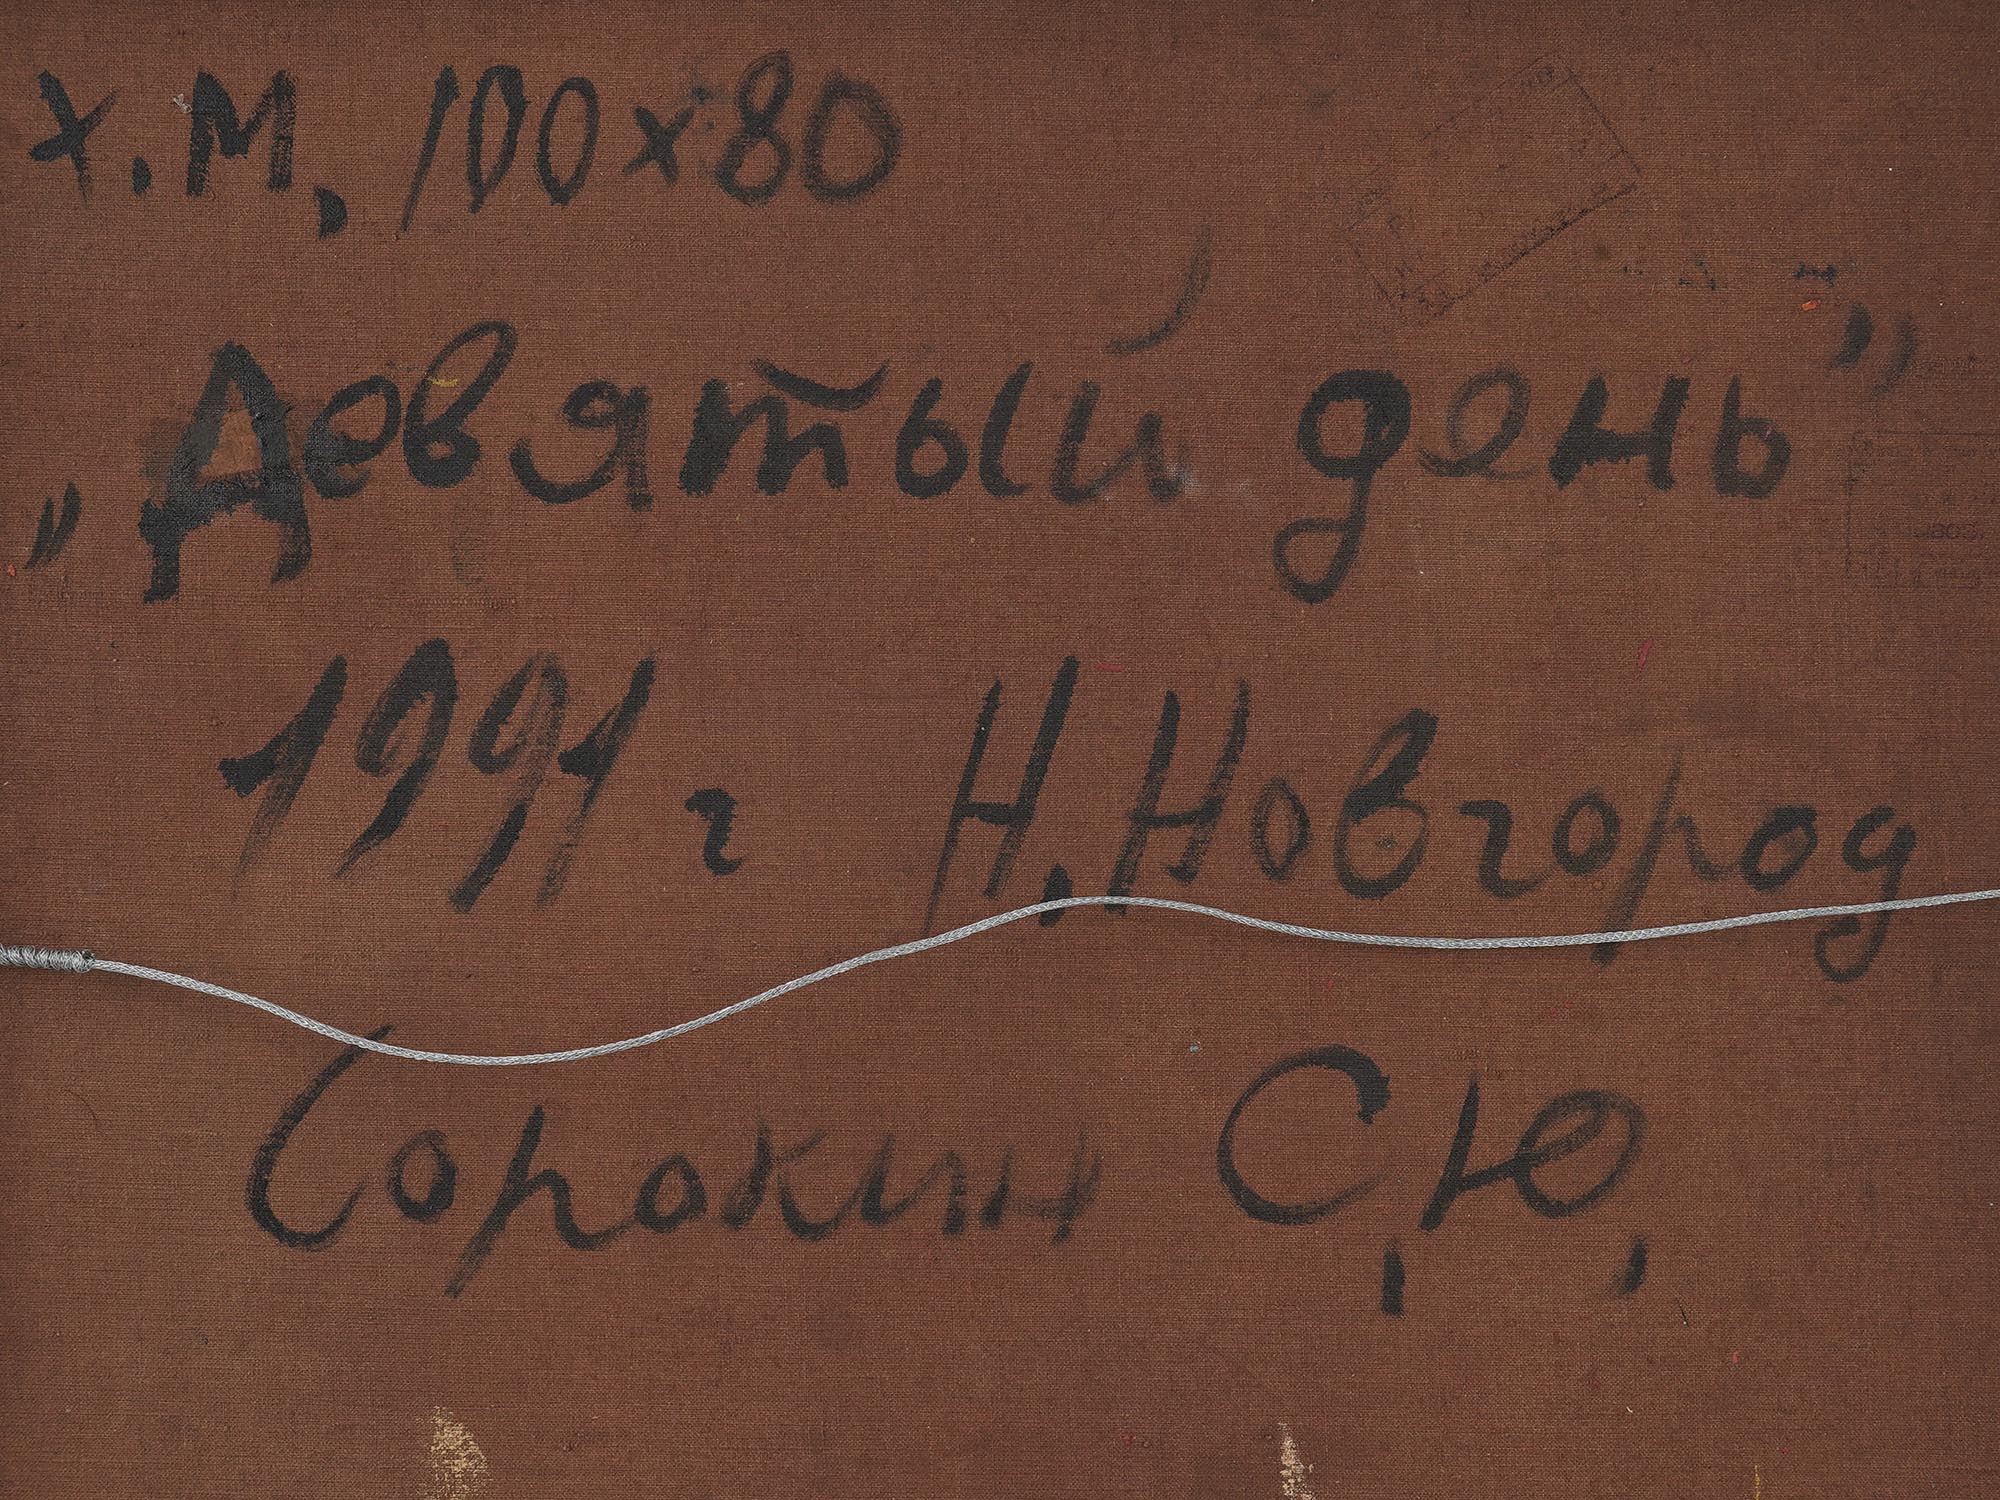 х.м, 100х80
„Девятый день”
1991 г Н.Новгород
Сорокин С,Ю,